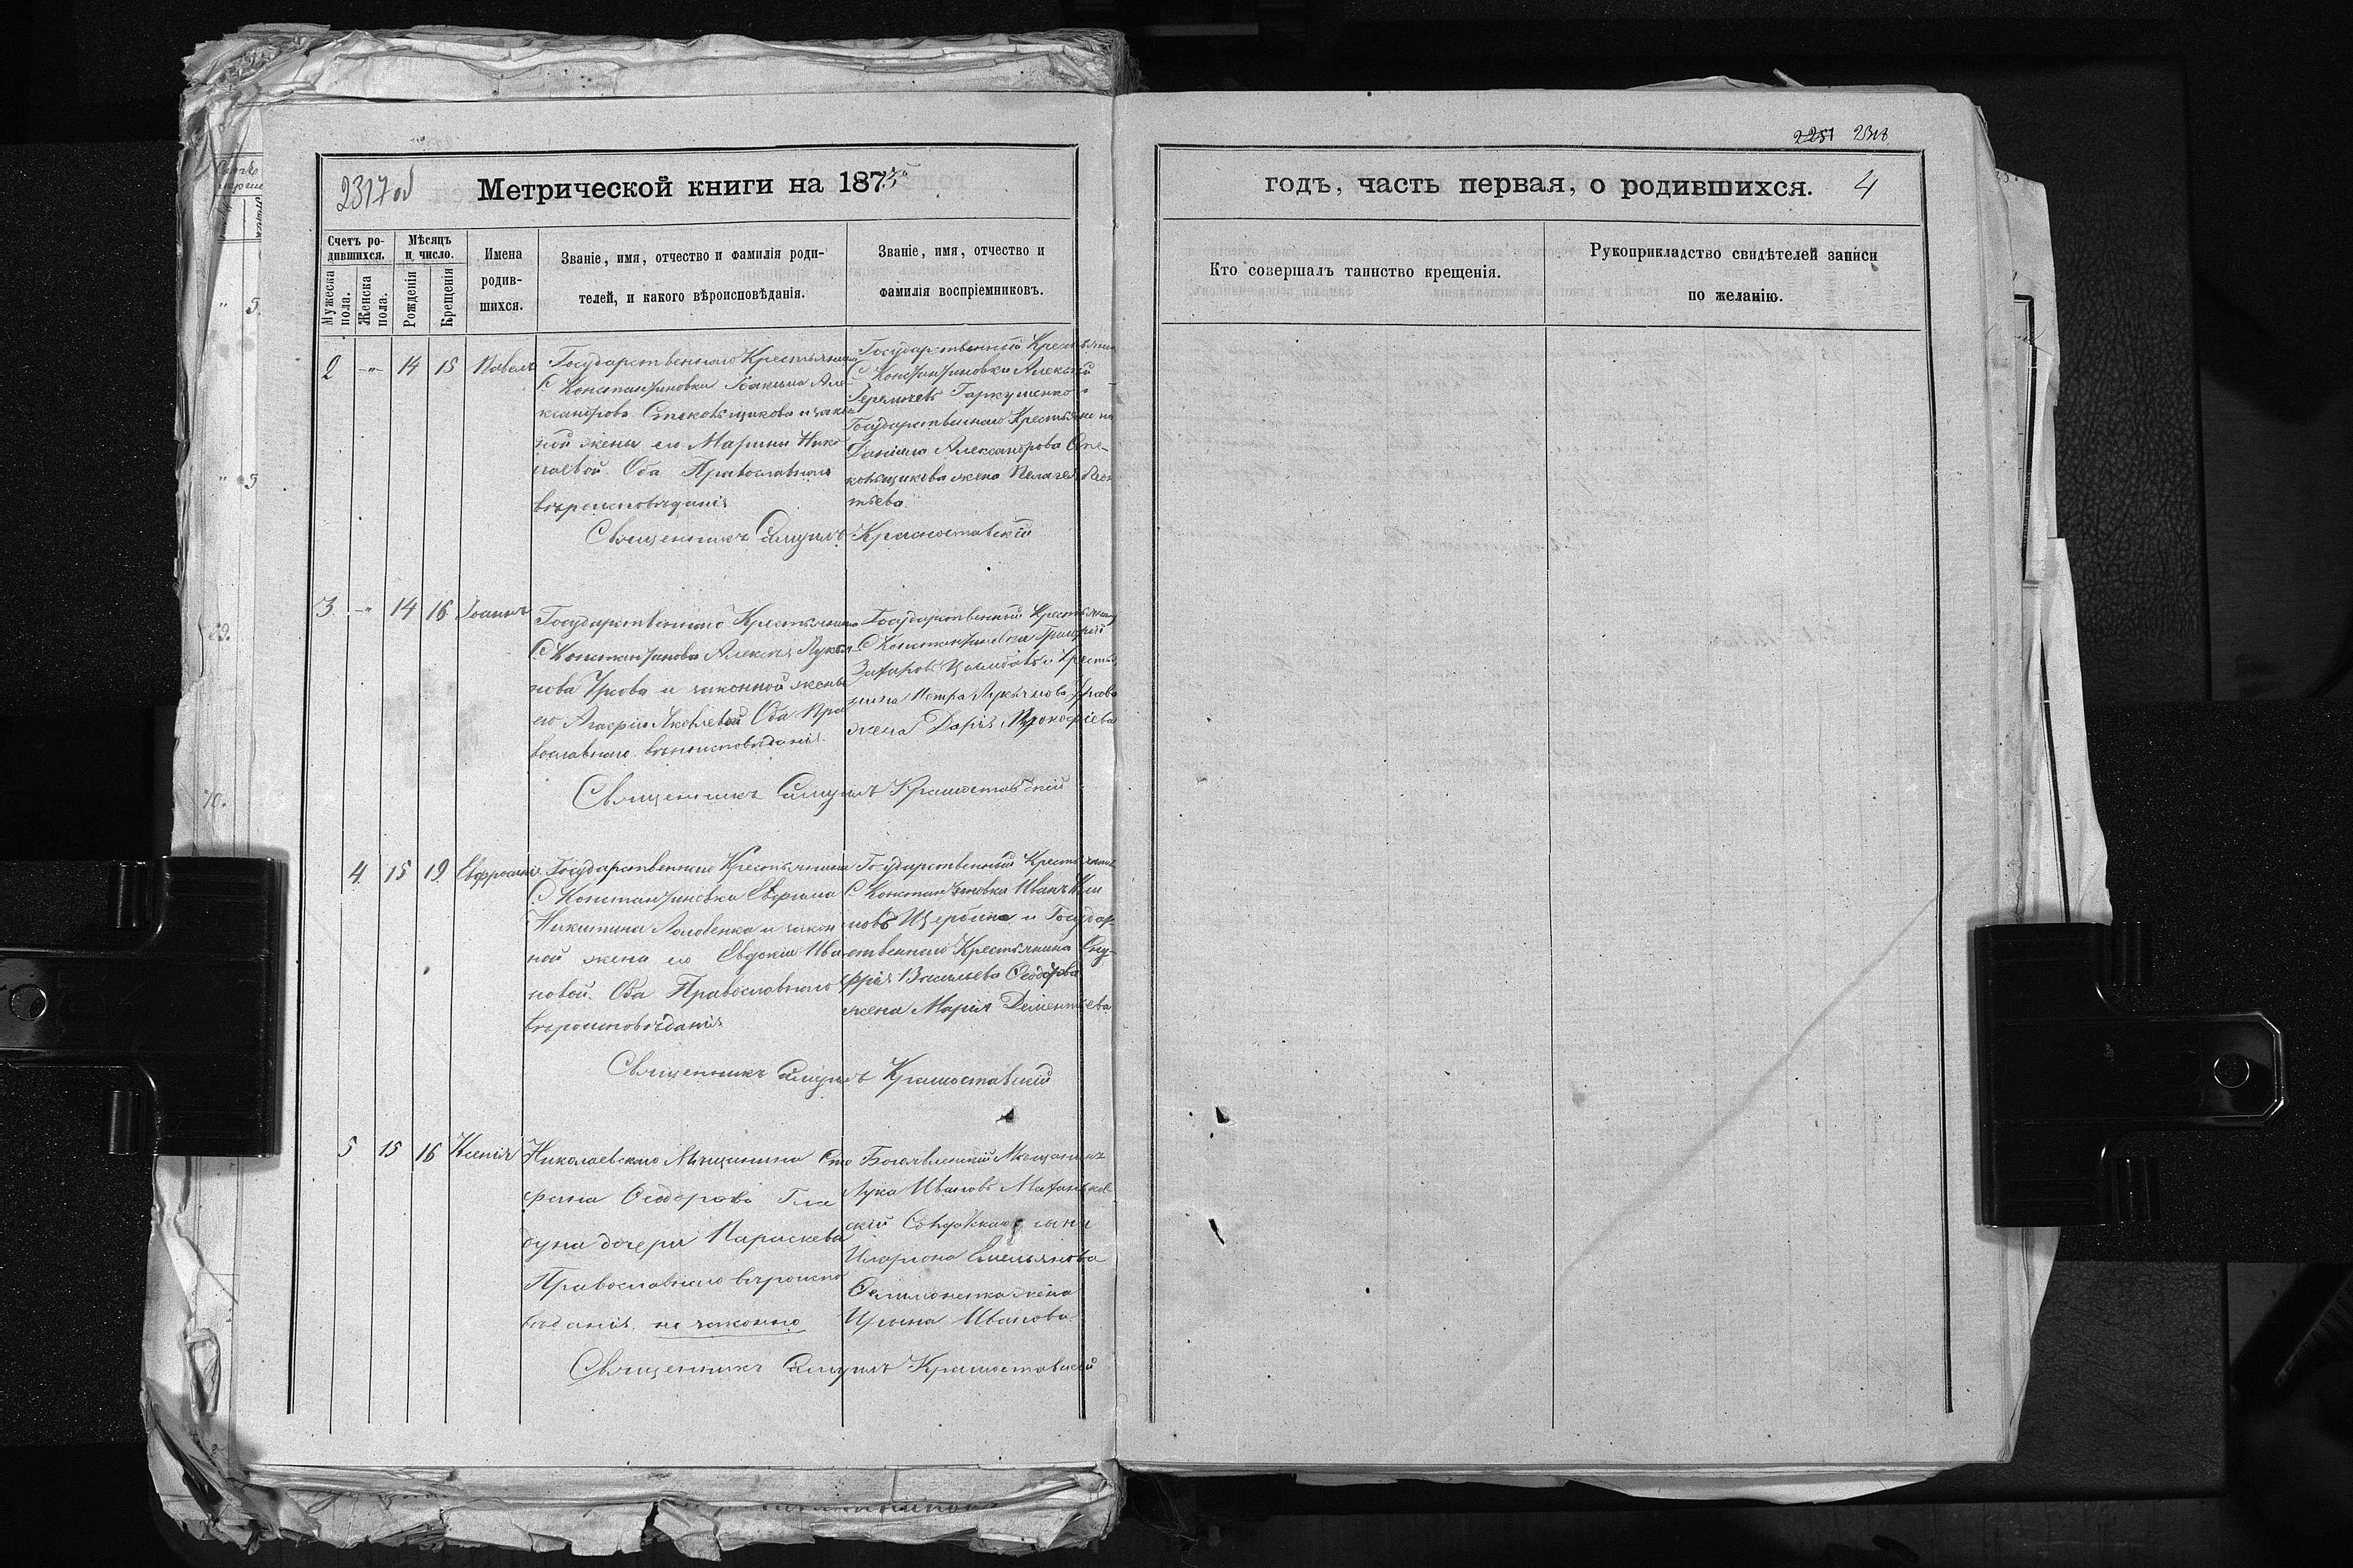 2251 2318
2317 об
Метрической книги на 1873
годъ, часть первая, о родившихся. 4
Счетъ родившихся.
Мужеска пола.
Женска пола.
Мѣсяцъ и число.
Рожденія
Крещенія
Имена родившихся.
Званіе, имя, отчество и фамилія роди-
телей, и какого вѣроисповѣданія.
Званіе, имя, отчество и
фамилія воспріемниковъ.
Кто совершалъ таинство крещенія.
Рукоприкладство свидѣтелей записи
по желанію.
2 -"- 14 15 Павелъ
Государственнаго Крестьянина
С. Константиновки Іоакима Але-
ксандрова и закон
ной жены его Марины Нико
лаевой Оба Православнаго
вѣроисповѣданія
Государственный Крестьянинъ
С. Константиновки Алексѣй
Гаркушенко и
Государственнаго Крестьянина
Даніила Александрова
жена Пелагея Леон
тьева.
Священникъ Самуилъ Красноставскій
3. -"- 14 16 Іоаннъ
Государственнаго Крестьянина
С. Константиновки Алексѣя Лукья
нова Усова и законной жены
его Яковлевой Оба Пра
вославнаго вѣроисповѣданія.
Государственный Крестьянинъ
С. Константиновки Григорій
Захаровъ и Крестья
нина Петра Лукьянова Усова
жена Дарія Прокофіева
Священникъ Самуилъ Красноставскій
4. 15 19 Евфросинія
Государственнаго Крестьянина
С. Константиновки Евфима
Никитина и закон
ной жены его Евдокіи Ива
новой. Оба Православнаго
вѣроисповѣданія
Государственный Крестьянинъ
С. Константиновки Иванъ
новъ Щербина и Государ-
ственнаго Крестьянина Ону-
фрія Васильева Ѳеодорова
жена Марія Дементьева
Священникъ Самуилъ Красноставскій
5 15 16 Ксенія
Николаевскаго Мѣщанина Сте
фана Ѳеодорова Гла
дуна дочери Параскева
Православнаго вѣроиспо
вѣданія, не законно
Богоявленскій Мѣщанинъ
Лука Ивановъ
скій сына
Иларіона Емельянова
жена
Ирина Иванова
Священникъ Самуилъ Красноставскій